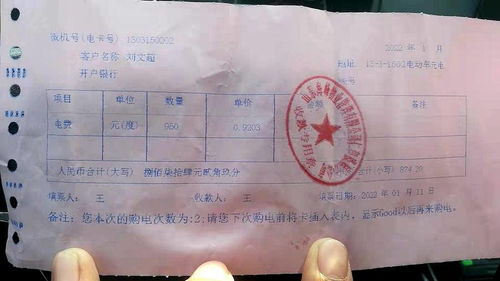 微机号(电卡号) 1303150002 2022 年 1 月
客户名称 刘文超 地址 13-1-1502电动车充电
开户银行 帐号
项目 单位 数量 单价 金额 备注
电费 元(度) 950 0.9203
人民币合计(大写) 捌佰柒拾肆元贰角玖分 合计(小写) 874.29
填票人: 王 收款人: 王 填票日期: 2022 年 01 月 11 日
备注: 您本次的购电次数为:2;请您下次购电前将卡插入表内，显示Good以后再来购电。